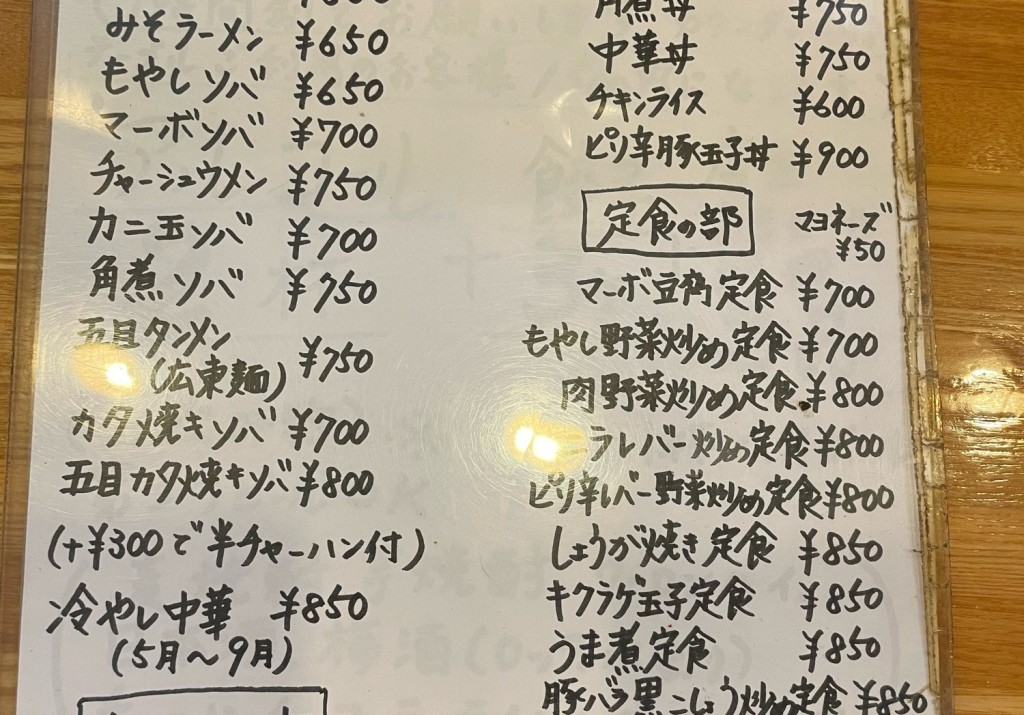 みそラーメン ¥650
もやしソバ ¥650
マーボソバ ¥700
チャーシュウメン ¥750
カニ玉ソバ ¥700
角煮ソバ ¥750
五目タンメン
(広東麺) ¥750
カタ焼きソバ ¥700
五目カタ焼きソバ ¥800
(+¥300で半チャーハン付)
冷やし中華 ¥850
(5月～9月)
角煮丼 ¥750
中華丼 ¥750
チキンライス ¥600
ピリ辛豚玉子丼 ¥900
定食の部
マヨネーズ
¥50
マーボ豆腐定食 ¥700
もやし野菜炒め定食 ¥700
肉野菜炒め定食 ¥800
ニラレバー炒め定食 ¥800
ピリ辛レバー野菜炒め定食 ¥800
しょうが焼き定食 ¥850
キクラゲ玉子定食 ¥850
うま煮定食 ¥850
豚バラ黒こしょう炒め定食 ¥850